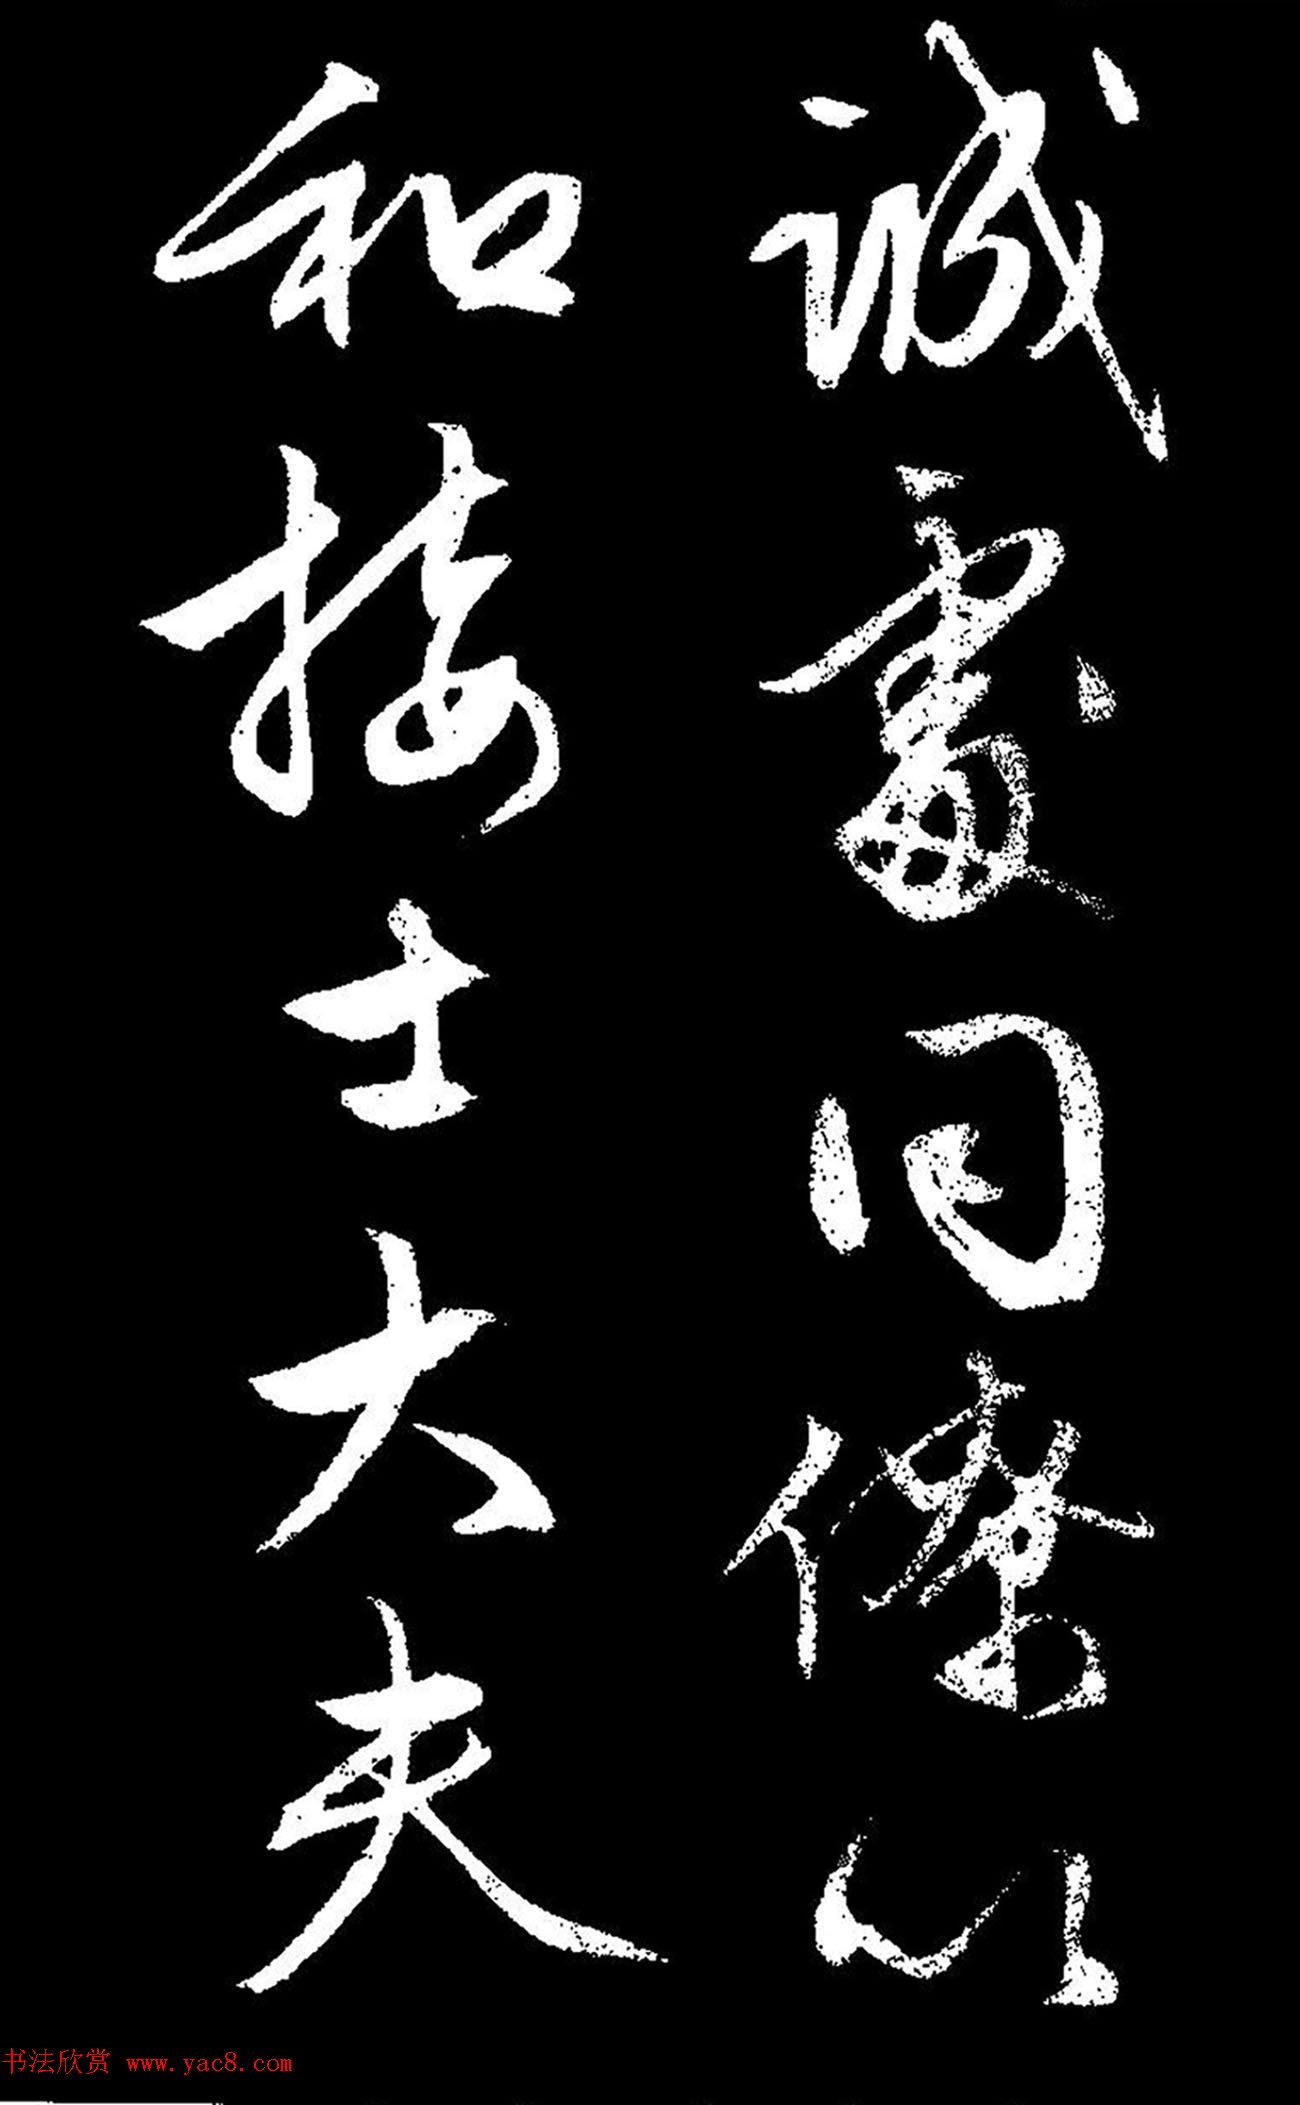 诚處同僚以
和接士大夫
书法欣赏 www.yac8.com